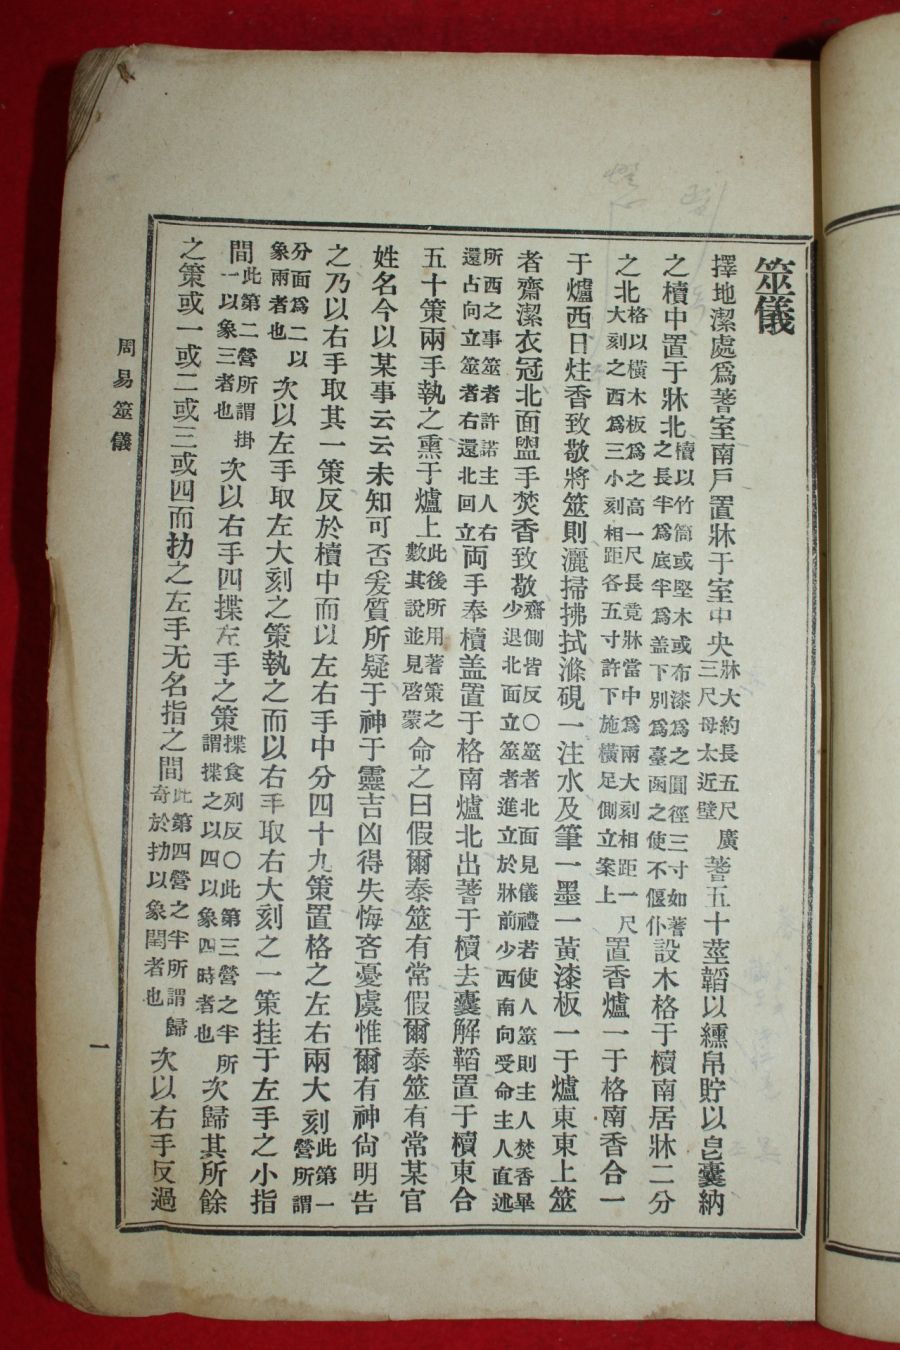 筮儀
擇地潔處爲蓍室南戶置牀于室中央牀大約長五尺廣三尺母太近壁蓍五十莖韜以纁帛貯以皂囊納
之櫝中置于牀北櫝以竹筒或堅木或布漆爲之圓徑三寸如蓍之長半爲底半爲盖下別爲臺函之使不偃仆設木格于櫝南居牀二分
之北格以橫木板爲之高一尺長竟牀當中爲兩大刻相距一尺大刻之西爲三小刻相距各五寸許下施橫足側立案上置香爐一于格南香合一
于爐西日炷香致敬將筮則灑掃拂拭滌硯一注水及筆一墨一黃漆板一于爐東東上筮
者齋潔衣冠北面盥手焚香致敬齋側皆反〇筮者北面見儀禮若使人筮則主人焚香畢少退北面立筮者進立於牀前少西南向受命主人直述
所西之事筮者許諾主人右還占向立筮者右還北回立両手奉櫝盖置于格南爐北出蓍于櫝去囊解韜置于櫝東合
五十策兩手執之熏于爐上此後所用蓍策之數其說並見啓蒙命之曰假爾泰筮有常假爾泰筮有常某官
姓名今以某事云云未知可否爰質所疑于神于靈吉凶得失悔吝憂虞惟爾有神尙明告
之乃以右手取其一策反於櫝中而以左右手中分四十九策置格之左右兩大刻此第一營所謂
分而爲二以象兩者也次以左手取左大刻之策執之而以右手取右大刻之一策挂于左手之小指
間此第二營所謂掛一以象三者也次以右手四揲左手之策揲食列反〇此第三營之半所謂揲之以四以象四時者也次歸其所餘
之策或一或二或三或四而扐之左手无名指之間此第四營之半所謂歸奇於扐以象閏者也次以右手反過
周易筮儀
一